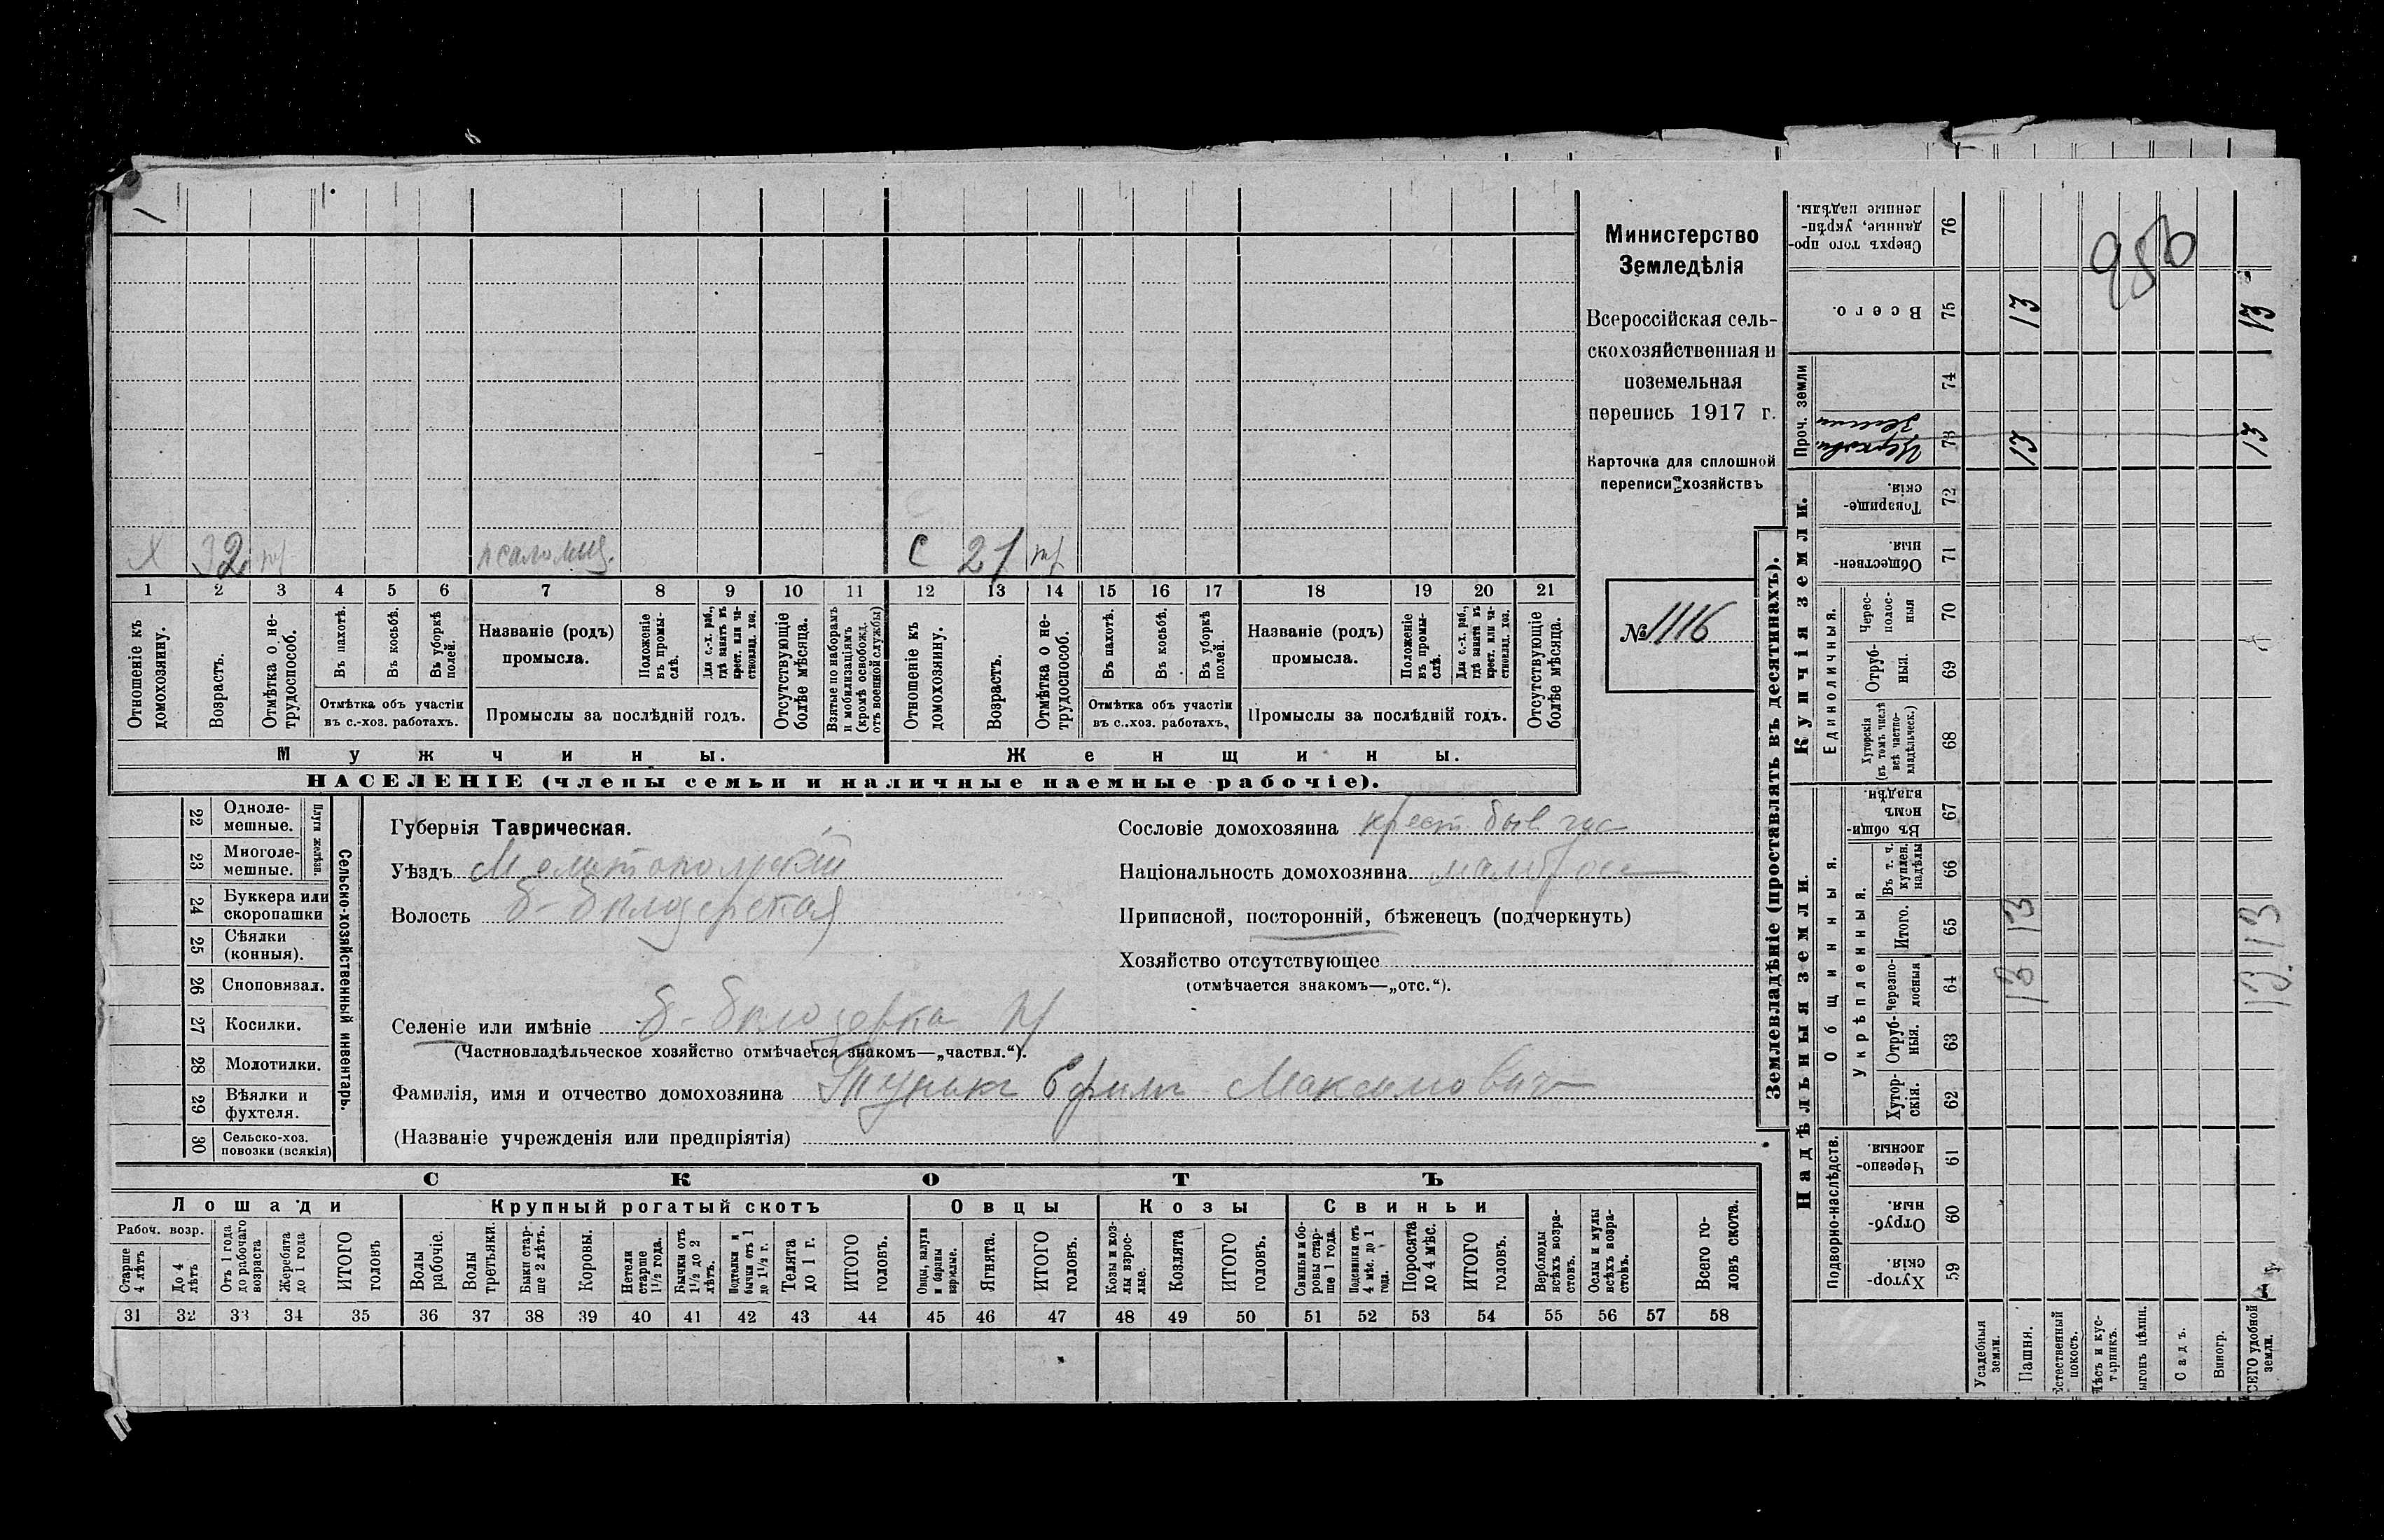 Министерство
Земледѣлія
Всероссійская сель-
скохозяйственная и
поземельная
перепись 1917 г.
Карточка для сплошной
переписи хозяйствъ
№ 1116
956
Х 32 псаломщ. С 21
1 2 3 4 5 6 7 8 9 10 11 12 13 14 15 16 17 18 19 20 21
Отношеніе къ домохозяину.
Возрастъ.
Отмѣтка о не-трудоспособ.
Въ пахотѣ.
Въ косьбѣ.
Въ уборкѣ полей.
Отмѣтка объ участіи
въ с.-хоз. работахъ.
Названіе (родъ)
промысла.
Положеніе въ промы-слѣ.
Для с.-х. раб., гдѣ занятъ въ крест. или ча-стновлад. хоз.
Промыслы за послѣдній годъ.
Отсутствующіе болѣе мѣсяца.
Взятые по наборамъ и мобилизаціямъ (кромѣ освобожд. отъ военной службы)
Отношеніе къ домохозяину.
Возрастъ.
Отмѣтка о не-трудоспособ.
Въ пахотѣ.
Въ косьбѣ.
Въ уборкѣ полей.
Отмѣтка объ участіи
въ с..хоз. работахъ.
Названіе (родъ)
промысла.
Положеніе въ промы-слѣ.
Для с.-х. раб., гдѣ занята въ крест. или ча-стновлад. хоз.
Промыслы за послѣдній годъ.
Отсутствующіе болѣе мѣсяца.
Мужчины. Женщины.
НАСЕЛЕНІЕ (члены семьи и наличные наемные рабочіе).
22 Одноле-мешные.
23 Многоле-мешные.
Плуги желѣзн.
24 Буккера или скоропашки
25 Сѣялки (конныя).
26 Сноповязал.
27 Косилки.
28 Молотилки.
29 Вѣялки и фухтеля.
30 Сельско-хоз. повозки (всякія)
Сельско-хозяйственный инвентарь.
Губернія Таврическая.
Уѣздъ Мелитопольскій
Волость Б-Бѣлозерская
Селеніе или имѣніе Б-Бѣлозерка
(Частновладѣльческое хозяйство отмѣчается знакомъ—„частвл.“).
Фамилія, имя и отчество домохозяина Ефимъ Максимовичъ
(Названіе учрежденія или предпріятія)
Сословіе домохозяина крест. быв гос
Національность домохозяина малорос
Приписной, посторонній, бѣженецъ (подчеркнуть)
Хозяйство отсутствующее
(отмѣчается знакомъ—„отс.“).
СКОТЪ
Лошади Крупный рогатый скотъ Овцы Козы Свиньи
Рабоч. возр.
Старше 4 лѣтъ
До 4 лѣтъ
Отъ 1 года до рабочаго возраста
Жеребята до 1 года
ИТОГО головъ
Волы рабочіе.
Волы третьяки.
Быки стар-ше 2 лѣтъ.
Коровы.
Нетели старше 1½ года.
Бычки отъ 1½ до 2 лѣтъ.
Подтелки и бычки отъ 1 до 1½ г.
Телята до 1 г.
ИТОГО головъ.
Овцы, валухи и бараны взрослые.
Ягнята.
ИТОГО головъ.
Козы и коз-лы взрос-лые.
Козлята
ИТОГО головъ.
Свиньи и бо-ровы стар-ше 1 года.
Подсвинки отъ 4 мѣс. до 1 года.
Поросята до 4 мѣс.
ИТОГО головъ.
Верблюды всѣхъ возра-стовъ.
Ослы и мулы всѣхъ возра-стовъ.
Всего го-ловъ скота.
31 32 33 34 35 36 37 38 39 40 41 42 43 44 45 46 47 48 49 50 51 52 53 54 55 56 57 58
Землевладѣніе (проставлять въ десятинахъ).
Сверхъ того про-данные, укрѣп-ленные надѣлы. 76
Всего. 75 13 13
Проч. земли
74
Церковн. Земли 73 13 13
Купчія земли.
Товарище-скія. 72
Обществен-ныя. 71
Единоличныя.
Черес-полос-ныя 70
Отруб-ныя. 69
Хуторскія (въ томъ числѣ всѣ частно-владѣльческ.) 68
Надѣльныя земли.
Общинныя.
Въ общи-номъ владѣн. 67
Укрѣпленныя.
Въ т. ч. куплен. надѣлы 66
Итого. 65 13 13
Черезпо-лосныя 64 13 13.
Отруб-ныя. 63
Хутор-скія. 62
Подворно-наслѣдств.
Черезпо-лосныя. 61
Отруб-ныя. 60
Хутор-скія. 59
Усадебныя земли.
Пашня.
Естественный покосъ.
Лѣсъ и кус-тарникъ.
ыгонъ цѣлин.
Садъ.
Виногр.
СЕГО удобной земли.